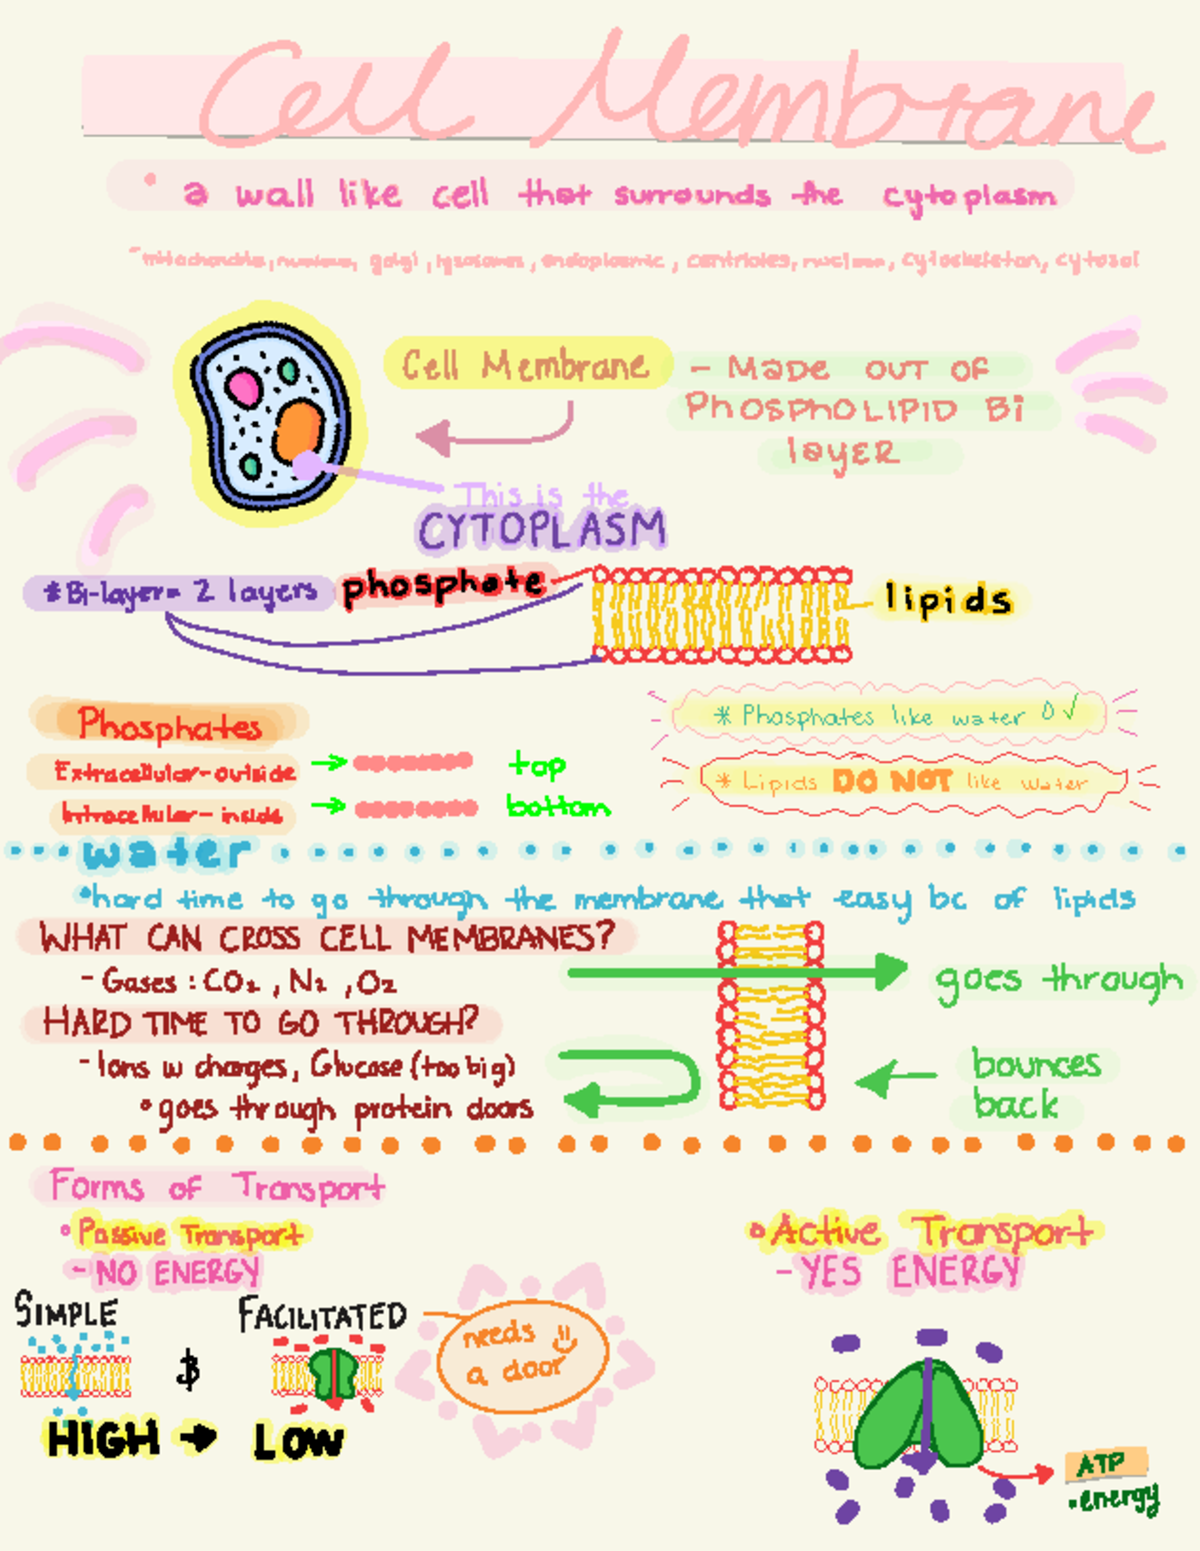 Cell Membrane
• a wall like cell that surrounds the cytoplasm
- mitochondria, nucleus, golgi, lysosomes, endoplasmic, centrioles, nuclear, cytoskeleton, cytosol
Cell Membrane - MADE OUT OF
PhosphoLIPID Bi
layER
This is the
CYTOPLASM
*Bi-layer= 2 layers phosphate
lipids
Phosphates
Extracellular-outside → top
Intracellular-inside → bottom
* Phosphates like water ✓
* Lipids DO NOT like water
water
•hard time to go through the membrane that easy bc of lipids
WHAT CAN CROSS CELL MEMBRANES?
- Gases : CO₂, N₂, O₂
goes through
HARD TIME TO GO THROUGH?
- Ions w charges, Glucose (too big)
• goes through protein doors
bounces
back
Forms of Transport
• Passive Transport
- NO ENERGY
SIMPLE
$
FACILITATED
needs
a door
HIGH → LOW
• Active Transport
- YES ENERGY
ATP
• energy